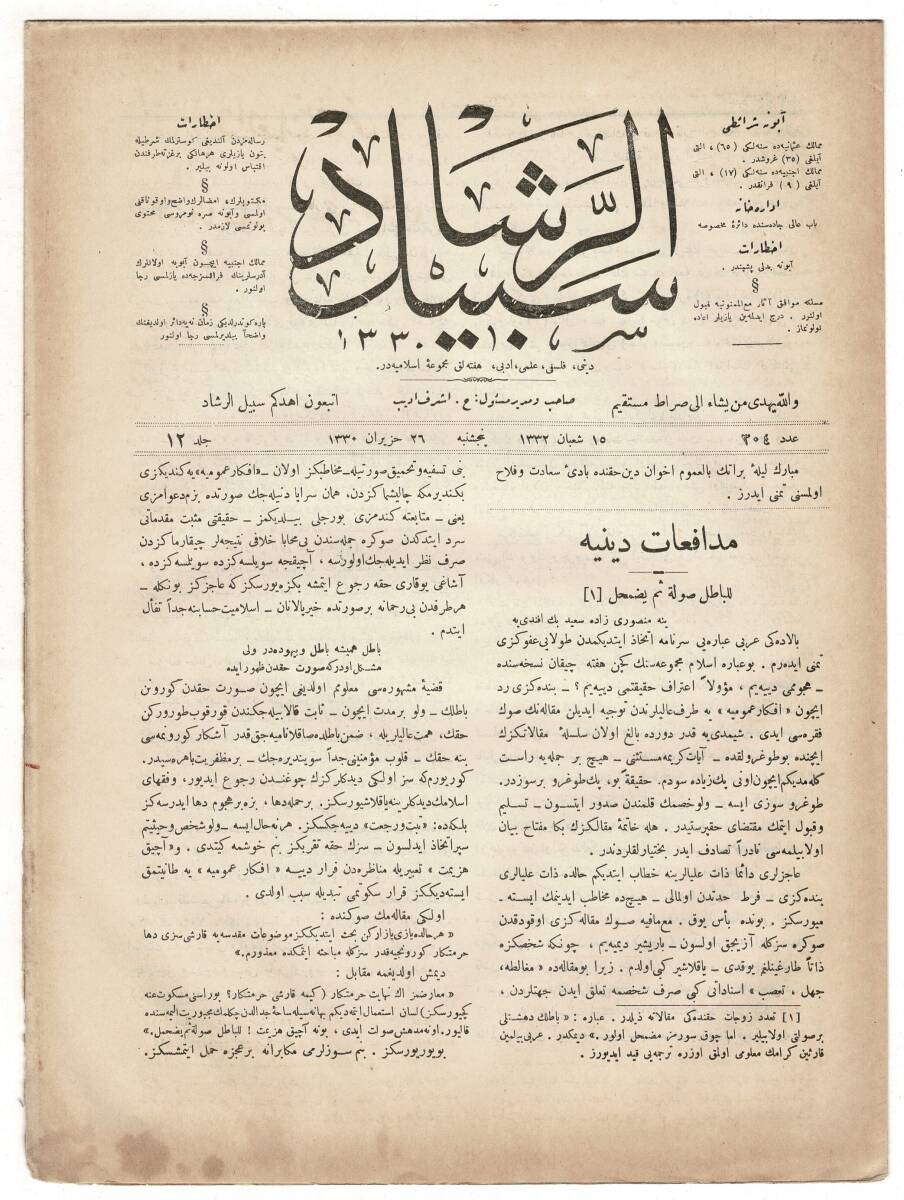 آبونه شرائطی
ممالك عثمانیه‌ده سنه‌لكی (٦٥) ، التی
آیلغی (٣٥) غروشدر .
ممالك اجنبیه‌ده سنه‌لكی (١٧) ، التی
آیلغی (٩) فرانقدر .
اداره‌خانه
باب عالی جاده‌سنده دائرهٔ مخصوصه
اخطارات
آبونه بدلی پشیندر .
§
مسلكه موافق آثار مع‌الممنونیه قبول
اولنور . درج ایدلمه‌ین یازیلر اعاده
اولونماز .
سبیل الرشاد
١٣٣٠
اخطارات
رساله‌مزدن آلندیغی كوسترلمك شرطیله
بتون یازیلری هرهانكی برغزته‌طرفندن
اقتباس اولونه بیلیر .
§
مكتوبلرك، امضالرك‌واضح‌واوقوناقلی
اولمسی وآبونه صره نومروسی محتوی
بولونمسی لازمدر .
§
ممالك اجنبیه ایچون آبونه اولانلرك
آدرسلرینك فرانسزجه‌ده یازلمسی رجا
اولنور .
§
پاره كوندرلدیكی زمان نه‌یه‌دائر اولدیغنك
واضحاً بیلدیرلمسی رجا اولنور
دینی، فلسفی، علمی، ادبی، هفته‌لق مجموعهٔ اسلامیه‌در.
والله‌یهدی‌من یشاء الی صراط مستقیم
صاحب ومدیرمسئول: ح . اشرف ادیب
اتبعون اهدكم سبیل الرشاد
عدد ٣٠٤
١٥ شعبان ١٣٣٢
پنجشنبه
٢٦ حزیران ١٣٣٠
جلد ١٢
مبارك لیلهٔ براتك بالعموم اخوان دین‌حقنده بادئ سعادت وفلاح
اولمسنی تمنی ایدرز .
مدافعات دینیه
للباطل صولة ثم یضمحل [١]
ینه منصوری زاده سعید بك افندی‌یه
بالاده‌كی عربی عباره‌یی سرنامه اتخاذ ایتدیكمدن طولایی‌عفوكزی
تمنی ایده‌رم . بوعباره اسلام مجموعه‌سنك كچن هفته چیقان نسخه‌سنده
ـ هجوممی دییه‌یم ، مؤولاً اعتراف حقیقتمی دییه‌یم ؟ ـ بنده‌كزی رد
ایچون « افكارعمومیه » یه طرف‌عالیلرندن توجیه ایدیلن مقاله‌نك صوك
فقره‌سی ایدی . شیمدی‌یه قدر دورده بالغ اولان سلسلهٔ مقالاتكزك
ایچنده بوطوغرولقده ـ آیات كریمه‌مستثنی ـ هیچ بر جمله‌یه راست
كله‌مدیكم‌ایچون‌اونی پك‌زیاده سودم. حقیقةً بو، پك‌طوغرو برسوزدر.
طوغرو سوزی ایسه ـ ولوخصمك قلمندن صدور ایتسون ـ تسلیم
وقبول ایتمك مقتضای حقپرستیدر . هله خاتمهٔ مقالكزك بكا مفتاح بیان
اولابیلمه‌سی نادراً تصادف ایدر بختیارلقلردندر.
عاجزلری دائما ذات عالیلرینه خطاب ایتدیكم حالده ذات عالیلری
بنده‌كزی ـ فرط حدتدن اولمالی ـ هیچ‌ده مخاطب ایدینمك ایسته ـ
میورسكز . بونده بأس یوق . مع‌مافیه صوك مقاله‌كزی اوقودقدن
صوكره سزكله آزیجق اولسون ـ باریشیر دیمیه‌یم ، چونكه شخصكزه
ذاتاً طارغینلغم یوقدی ـ یاقلاشیر كبی اولدم. زیرا بومقاله‌ده «مغالطه،
جهل ، تعصب » اسناداتی كبی صرف شخصمه تعلق ایدن جهتلردن ،
[١] تعدد زوجات حقنده‌كی مقالاته ذیلدر . عباره : « باطلك دهشتلی
برصولتی اولابیلیر . اما چوق سورمز مضمحل اولور.» دیمكدر . عربی‌بیلمین
قارئین كرامك معلومی اولمق اوزره ترجمه‌یی قید ایدیورز .
بنی تسفیه‌وتحمیق‌صورتیله‌ـ مخاطبكز اولان ـ «افكارعمومیه» یه‌كندیكزی
بكندیرمكه چالیشماكزدن، همان سراپا دنیله‌جك صورتده بزم‌دعوامزی
یعنی ـ متابعته كندمزی بورجلی بیلدیكمز ـ حقیقتی مثبت مقدماتی
سرد ایتدكدن صوكره جمله‌سندن بی‌محابا خلافی نتیجه‌لر چیقارماكزدن
صرف نظر ایدیله‌جك‌اولورسه ، آچیقجه سویلسه‌كزده سویلمسه‌كزده ،
آشاغی یوقاری حقه رجوع ایتمشه بكزه‌یورسكز كه عاجزكز بونكله ـ
هرطرفدن بی‌رحمانه برصورتده خیرپالانان ـ اسلامیت‌حسابنه جداً تفأل
ایتدم .
باطل همیشه باطل وبیهوده‌در ولی
مشكل اودركه صورت حقدن ظهور ایده
قضیهٔ مشهوره‌سی معلومم اولدیغی ایچون صورت حقدن كورونن
باطلك ـ ولو برمدت ایچون ـ ثابت قالابیله‌جكندن قورقوب‌طورور‌كن
حقك، همت‌عالیلریله ، ضمن باطلده‌صاقلانامیه‌جق‌قدر آشكار كورونمه‌سی
ینه حقك ـ قلوب مؤمنینی‌جداً سویندیره‌جك ـ برمظفریت‌باهره‌سیدر.
كورپورم‌كه سز اولكی دیدكلركزك چوغندن رجوع ایدیور، وفقهای
اسلامك‌دیدكلرینه‌یاقلاشیورسكز. برحمله‌دها ، بزه‌برهجوم دها ایدرسه‌كز
بلكه‌ده: «تبت‌ورجعت» دییه‌جكسكز. هرنه‌حال‌ایسه ـ ولوشخص‌وحیثیتم
سپراتخاذ ایدلسون ـ سزك حقه تقربكز بنم خوشمه كیتدی . و«آچیق
هزیمت » تعبیریله مناظره‌دن فرار دییه « افكار عمومیه » یه طانیتمق
ایسته‌دیككز قرار سكوتمی تبدیله سبب اولدی .
اولكی مقاله‌مك صوكنده :
« هرحالده‌یازی‌یازاركن بحث ایتدیككزموضوعات مقدسه‌یه قارشی سزی دها
حرمتكار كورونجیه‌قدر سزكله مباحثه ایتمكده معذورم.»
دیمش اولدیغمه مقابل :
« معارضمز اك نهایت حرمتكار ( كیمه قارشی حرمتكار؟ بوراسنی مسكوت‌عنه
بوبوریورسكز . بنم سوزلرمی مكابرانه برعجزه حمل ایتمشسكز.